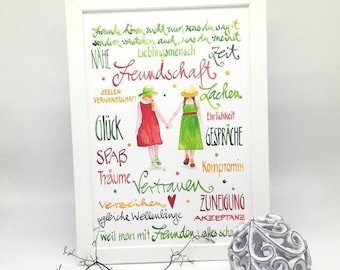 Freunde hören nicht nur, was du sagst
sondern verstehen auch, was du meinst
NÄHE Lieblingsmensch Zeit
Freundschaft
SEELEN-
VERWANDTSCHAFT Lachen
Ehrlichkeit
GLÜCK GESPRÄCHE
SPAß
Träume Kompromiss
Vertrauen
verzeihen ZUNEIGUNG
gleiche Wellenlänge AKZEPTANZ
weil man mit Freunden alles